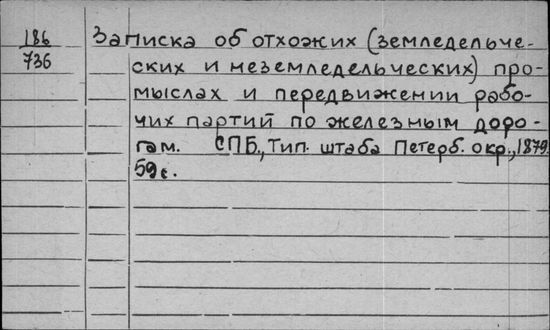 186 Записка об отхожих (земледельче-
736 ских и неземледельческих) про-
мыслах и передвижении рабо-
чих партий по железным доро-
гам. СПБ., Тип. штаба Петерб. окр., 1879.
59 с.